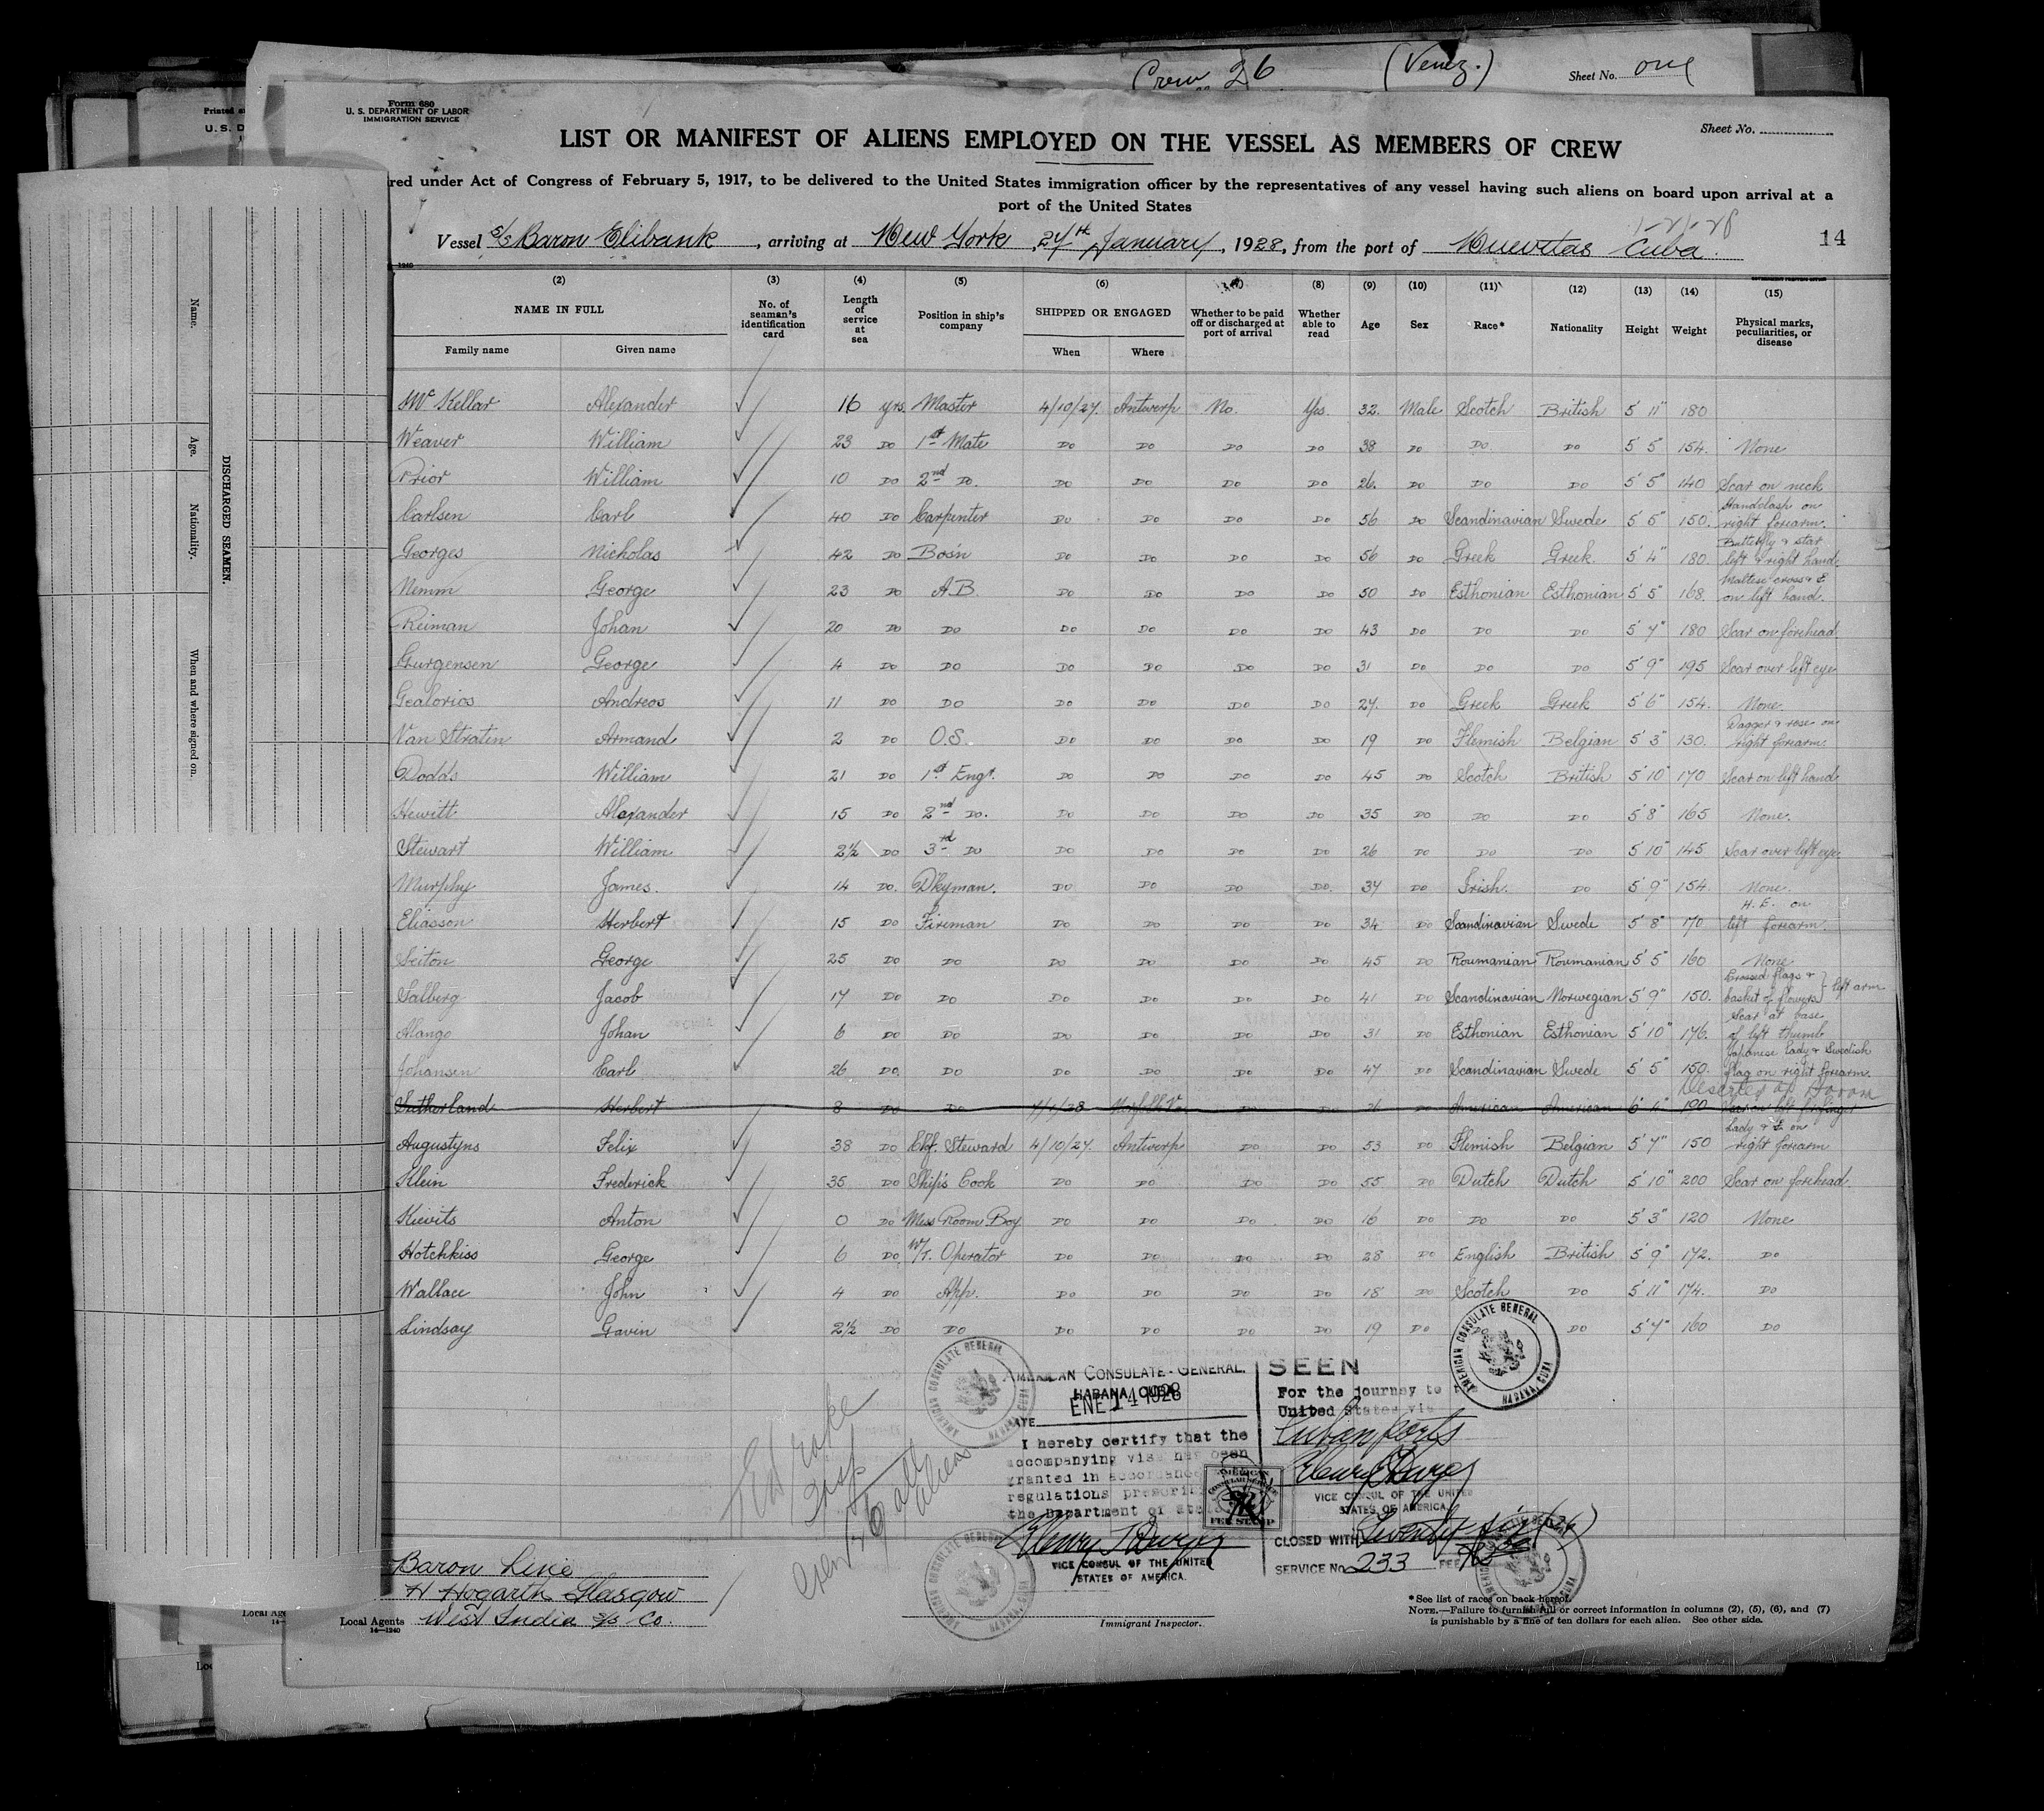 Crew 26 (Venez.) Sheet No. one
Form 680
U. S. DEPARTMENT OF LABOR
IMMIGRATION SERVICE
Sheet No.
LIST OR MANIFEST OF ALIENS EMPLOYED ON THE VESSEL AS MEMBERS OF CREW
red under Act of Congress of February 5, 1917, to be delivered to the United States immigration officer by the representatives of any vessel having such aliens on board upon arrival at a
port of the United States
Vessel S/S Baron Elibank, arriving at New York, 24th January, 1928, from the port of Nuevitas Cuba.
14
(2) (3) (4) (5) (6) (8) (9) (10) (11) (12) (13) (14) (15)
NAME IN FULL No. of seaman's identification card Length of service at sea Position in ship's company SHIPPED OR ENGAGED Whether to be paid off or discharged at port of arrival Whether able to read Age Sex Race* Nationality Height Weight Physical marks, peculiarities, or disease
Family name Given name When Where
McKellar Alexander 16 yrs. Master 4/10/27. Antwerp No. Yes. 32. Male Scotch British 5' 11" 180
Weaver William 23 Do 1st Mate Do Do Do Do 38 Do Do Do 5' 5" 154. None
Prior William 10 Do 2nd Do. Do Do Do Do 26. Do Do Do 5' 5" 140 Scar on neck
Carlsen Carl 40 Do Carpenter Do Do Do Do 56 Do Scandinavian Swede 5' 5" 150. Handclash on right forearm.
Georges Nicholas 42 Do Bos'n Do Do Do Do 56 Do Greek Greek. 5' 4" 180. Butterfly & star left & right hand.
Nemm George 23 Do A.B. Do Do Do Do 50 Do Esthonian Esthonian 5' 5" 168. Maltese cross & E on left hand.
Reiman Johan 20 Do Do Do Do Do Do 43 Do Do Do 5' 7" 180 Scar on forehead.
Gurgensen George 4 Do Do Do Do Do Do 31 Do Do Do 5' 9" 195 Scar over left eye
Gealorios Andreos 11 Do Do Do Do Do Do 27. Do Greek Greek 5' 6" 154. None.
Van Straten Armand 2 Do O.S. Do Do Do Do 19 Do Flemish Belgian 5' 3" 130. Dagger & rose on right forearm.
Dodds William 21 Do 1st Engr. Do Do Do Do 45 Do Scotch British 5' 10" 170 Scar on left hand
Hewitt Alexander 15 Do 2nd Do. Do Do Do Do 35 Do Do Do 5' 8" 165 None.
Stewart William 2½ Do 3rd Do Do Do Do Do 26 Do Do Do 5' 10" 145 Scar over left eye.
Murphy James. 14 Do. D'kyman. Do Do Do Do. 37 Do Irish. Do 5' 9" 154. None.
Eliasson Herbert 15 Do Fireman Do Do Do Do 34 Do Scandinavian Swede 5' 8" 170 H. E. on left forearm.
Seiton George 25 Do Do Do Do Do Do 45 Do Roumanian Roumanian 5' 5" 160 None
Salberg Jacob 17 Do Do Do Do Do Do 41 Do Scandinavian Norwegian 5' 9" 150. Crossed flags & basket of flowers } left arm
Alango Johan 6 Do Do Do Do Do Do 31 Do Esthonian Esthonian 5' 10" 176. Scar at base of left thumb
Johansen Carl 26 Do. Do Do Do Do Do 47 Do Scandinavian Swede 5' 5" 150. Japanese lady & Swedish flag on right forearm.
Deserted at
Sutherland Herbert 8 Do Do 7/1/28 Norfolk Va Do Do 26 Do American American 6' 4" 190 Scar on left
Augustyns Felix 38 Do Chf. Steward 4/10/27. Antwerp Do Do 53 Do Flemish Belgian 5' 7" 150 Lady & E on right forearm
Klein Frederick 35 Do Ship's Cook Do Do Do Do 55 Do Dutch Dutch 5' 10" 200 Scar on forehead.
Kievits Anton 0 Do Mess Room Boy Do Do Do Do 16 Do Do Do 5' 3" 120 None
Hotchkiss George 6 Do W/T. Operator Do Do Do Do 28 Do English British 5' 9" 172. Do
Wallace John 4 Do App. Do Do Do Do 18 Do Scotch Do 5' 11" 174. Do
Lindsay Gavin 2½ Do Do Do Do Do Do 19 Do Do Do 5' 7" 160 Do
DISCHARGED SEAMEN.
Name. Age. Nationality. When and where signed on.
AMERICAN CONSULATE-GENERAL.
HABANA, CUBA
ENE 14 1928
I hereby certify that the
accompanying visa has been
granted in accordance
regulations prescri
the Department of State
Henry T. Dwyer
VICE CONSUL OF THE UNITED
STATES OF AMERICA.
SEEN
For the journey to the
United States via
Cuban ports
VICE CONSUL OF THE UNITED
STATES OF AMERICA
CLOSED WITH Twenty six (26)
SERVICE No. 233 FEE
AMERICAN CONSULATE GENERAL HAVANA CUBA
AMERICAN CONSULAR SERVICE FEE STAMP
26 all aliens
Baron Line
H Hogarth Glasgow
Local Agents West India S/S Co.
14—1240
Immigrant Inspector.
*See list of races on back hereof.
NOTE.—Failure to furnish full or correct information in columns (2), (5), (6), and (7)
is punishable by a fine of ten dollars for each alien. See other side.